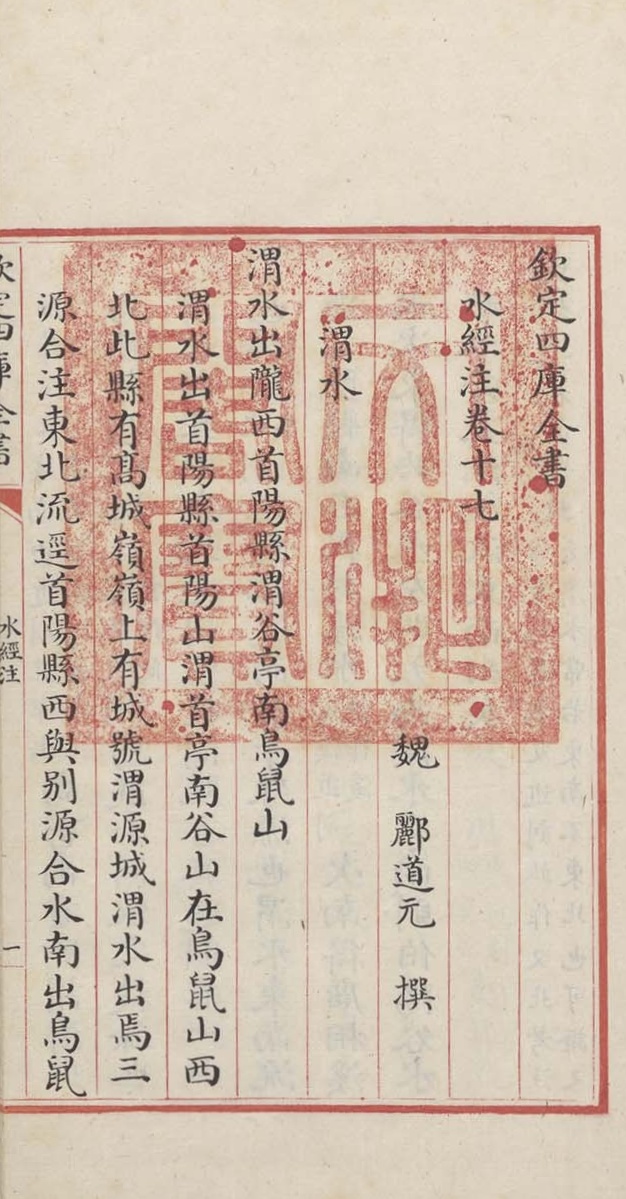 欽定四庫全書
水經注卷十七
魏 酈道元 撰
渭水
渭水出隴西首陽縣渭谷亭南鳥鼠山
渭水出首陽縣首陽山渭首亭南谷山在鳥鼠山西
北此縣有髙城嶺嶺上有城號渭源城渭水出焉三
源合注東北流逕首陽縣西與别源合水南出鳥鼠
欽定四庫全書
水經注
一